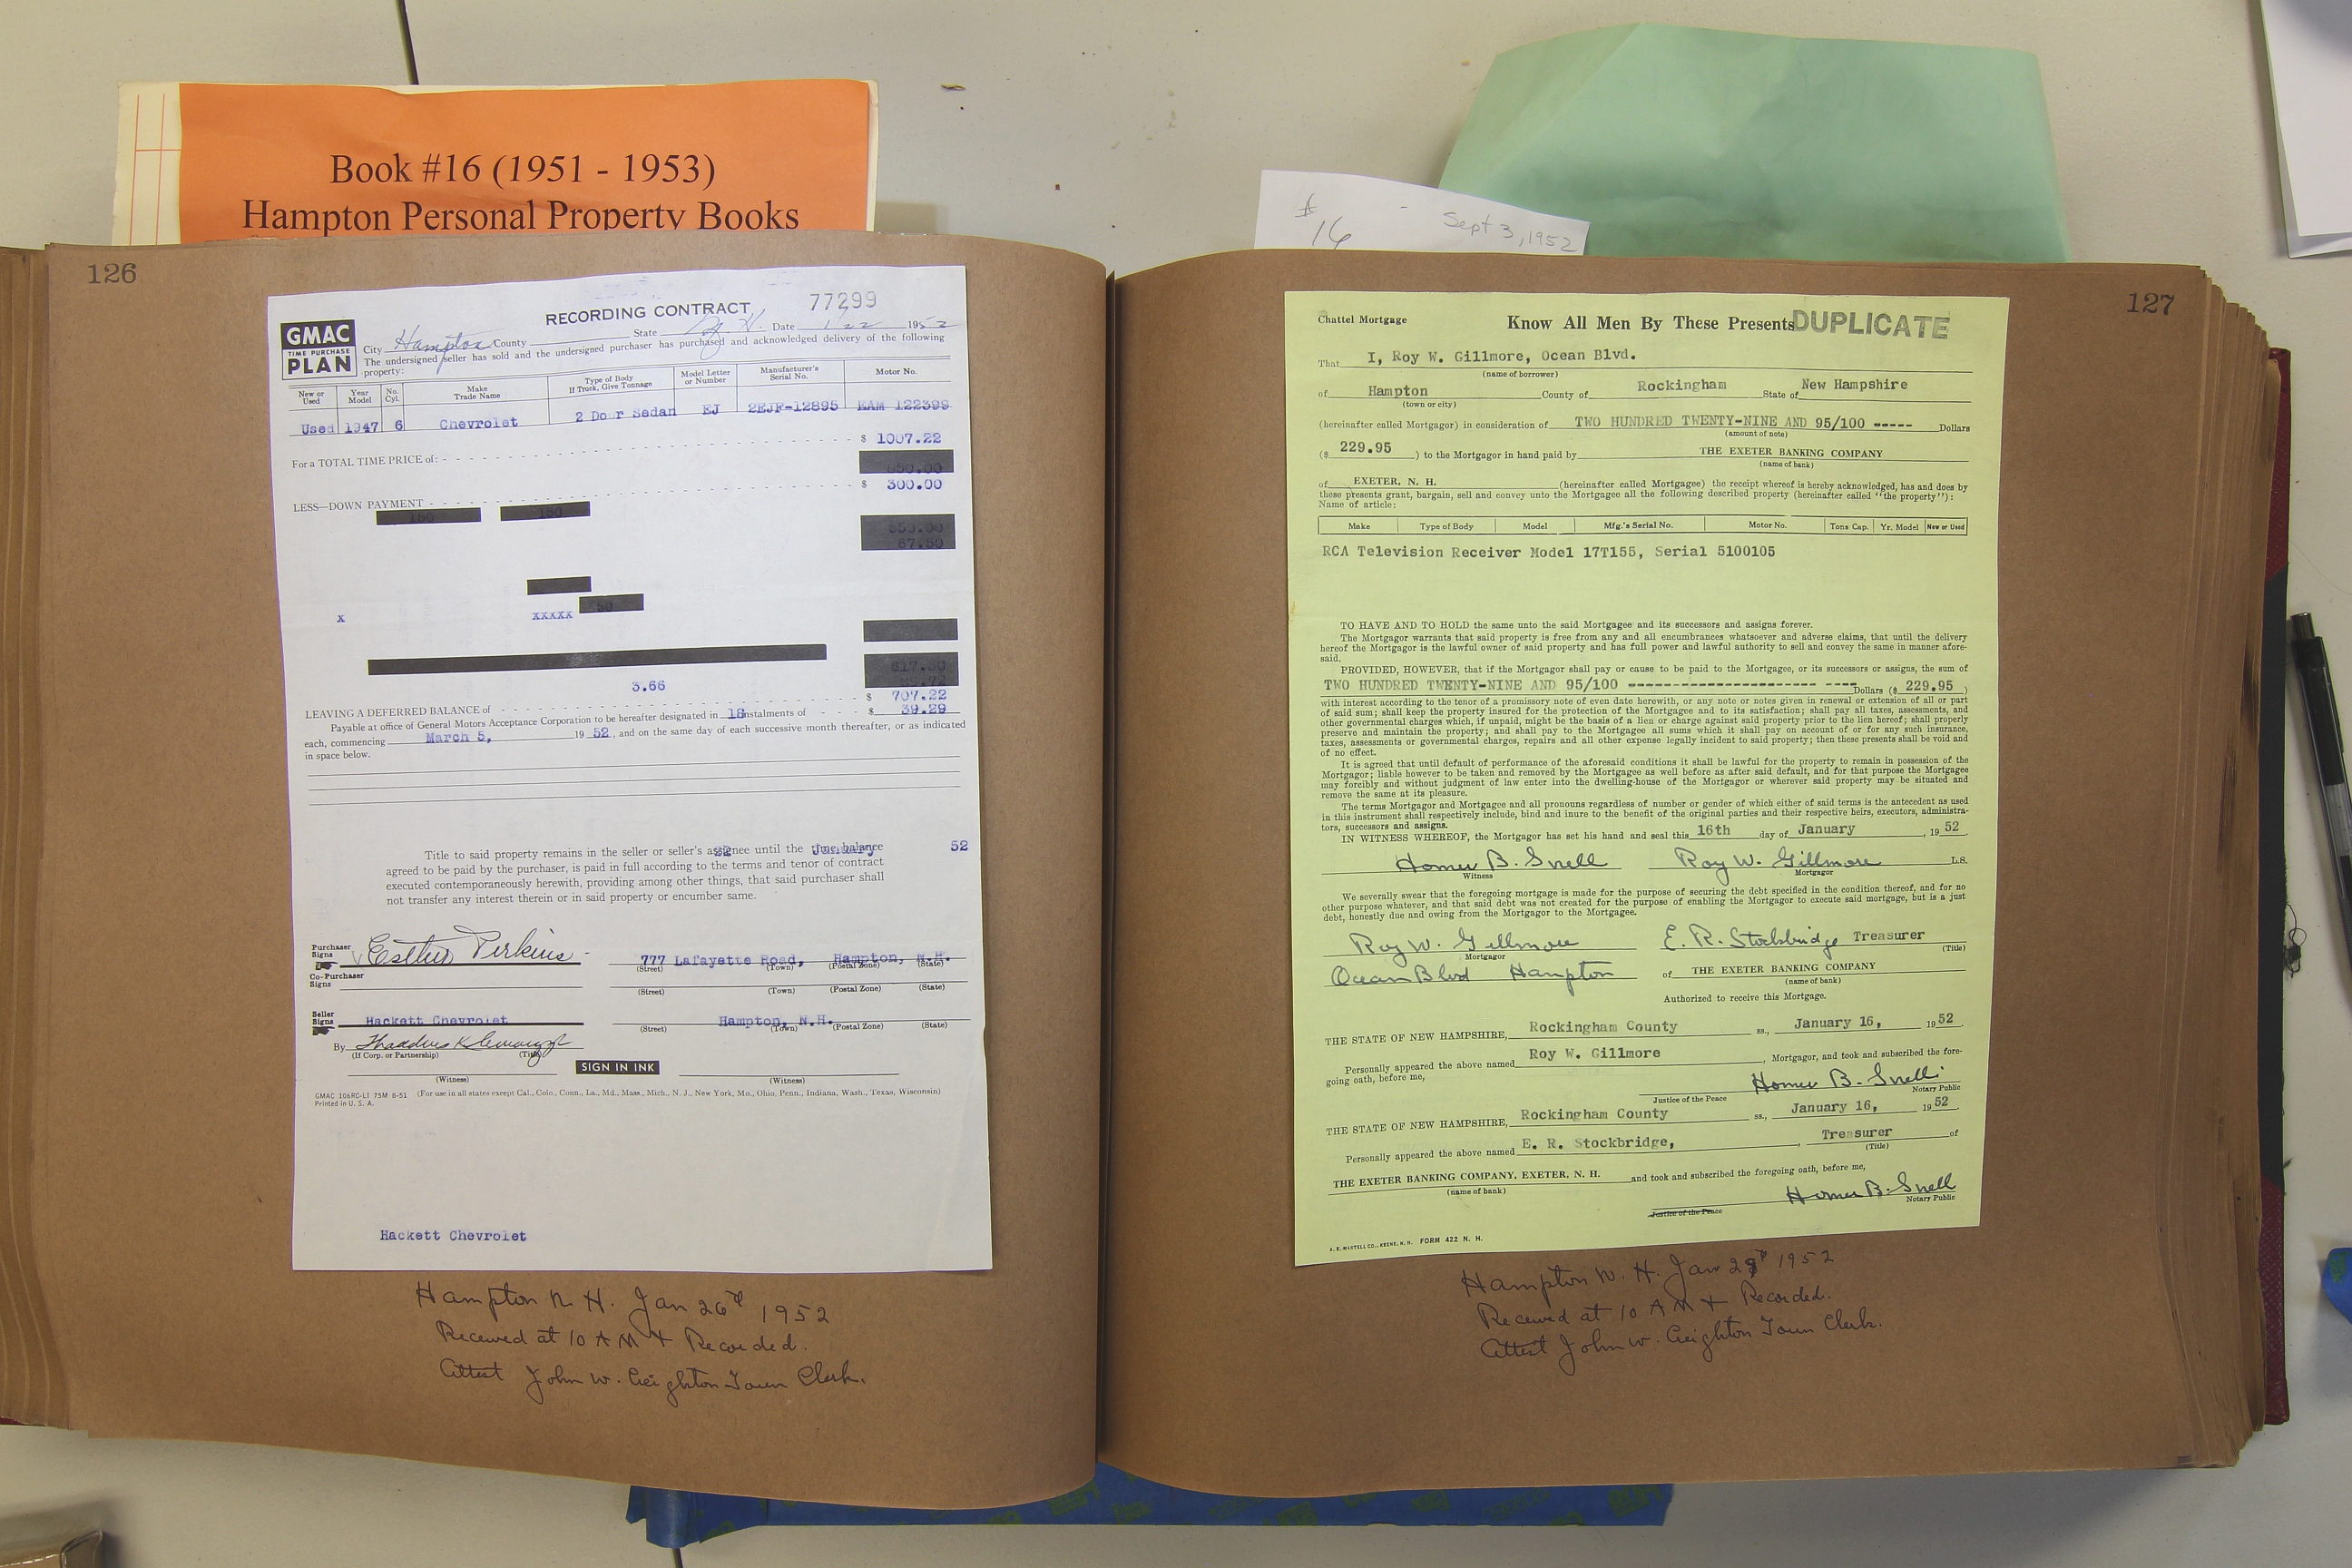 Book #16 (1951 - 1953)
Hampton Personal Property Books
16
Sept 3, 1952
126
RECORDING CONTRACT
77299
GMAC
TIME PURCHASE
PLAN
City Hampton County State N. H. Date 1/22 1952
The undersigned seller has sold and the undersigned purchaser has purchased and acknowledged delivery of the following
property:
New or Used Year Model No. Cyl. Make Trade Name Type of Body If Truck, Give Tonnage Model Letter or Number Manufacturer's Serial No. Motor No.
Used 1947 6 Chevrolet 2 Door Sedan EJ 2EJF-12895 EAM 122399
For a TOTAL TIME PRICE of: $ 1007.22
LESS—DOWN PAYMENT $ 300.00
x xxxxx
3.66
LEAVING A DEFERRED BALANCE of $ 707.22
Payable at office of General Motors Acceptance Corporation to be hereafter designated in 18 instalments of $ 39.29
each, commencing March 5, 1952, and on the same day of each successive month thereafter, or as indicated
in space below.
22 January 52
Title to said property remains in the seller or seller's assignee until the time balance
agreed to be paid by the purchaser, is paid in full according to the terms and tenor of contract
executed contemporaneously herewith, providing among other things, that said purchaser shall
not transfer any interest therein or in said property or encumber same.
Purchaser Signs Esther Perkins 777 Lafayette Road, Hampton, N.H.
(Street) (Town) (Postal Zone) (State)
Co-Purchaser Signs
(Street) (Town) (Postal Zone) (State)
Seller Signs Hackett Chevrolet Hampton, N.H.
(Street) (Town) (Postal Zone) (State)
By
(If Corp. or Partnership) (Title)
SIGN IN INK
(Witness) (Witness)
GMAC 106RC-LI 75M 8-51 (For use in all states except Cal., Colo., Conn., La., Md., Mass., Mich., N. J., New York, Mo., Ohio, Penn., Indiana, Wash., Texas, Wisconsin)
Printed in U. S. A.
Hackett Chevrolet
Hampton N. H. Jan 26th 1952
Received at 10 AM + Recorded.
Attest John W. Creighton Town Clerk.
127
Chattel Mortgage Know All Men By These Presents DUPLICATE
That I, Roy W. Gillmore, Ocean Blvd.
(name of borrower)
of Hampton County of Rockingham State of New Hampshire
(town or city)
(hereinafter called Mortgagor) in consideration of TWO HUNDRED TWENTY-NINE AND 95/100 ----- Dollars
(amount of note)
($ 229.95 ) to the Mortgagor in hand paid by THE EXETER BANKING COMPANY
(name of bank)
of EXETER, N. H. (hereinafter called Mortgagee) the receipt whereof is hereby acknowledged, has and does by
these presents grant, bargain, sell and convey unto the Mortgagee all the following described property (hereinafter called "the property"):
Name of article:
Make Type of Body Model Mfg.'s Serial No. Motor No. Tons Cap. Yr. Model New or Used
RCA Television Receiver Model 17T155, Serial 5100105
TO HAVE AND TO HOLD the same unto the said Mortgagee and its successors and assigns forever.
The Mortgagor warrants that said property is free from any and all encumbrances whatsoever and adverse claims, that until the delivery
hereof the Mortgagor is the lawful owner of said property and has full power and lawful authority to sell and convey the same in manner afore-
said.
PROVIDED, HOWEVER, that if the Mortgagor shall pay or cause to be paid to the Mortgagee, or its successors or assigns, the sum of
TWO HUNDRED TWENTY-NINE AND 95/100 ---------------------- ---- Dollars ($ 229.95 )
with interest according to the tenor of a promissory note of even date herewith, or any note or notes given in renewal or extension of all or part
of said sum; shall keep the property insured for the protection of the Mortgagee and to its satisfaction; shall pay all taxes, assessments, and
other governmental charges which, if unpaid, might be the basis of a lien or charge against said property prior to the lien hereof; shall properly
preserve and maintain the property; and shall pay to the Mortgagee all sums which it shall pay on account of or for any such insurance,
taxes, assessments or governmental charges, repairs and all other expense legally incident to said property; then these presents shall be void and
of no effect.
It is agreed that until default of performance of the aforesaid conditions it shall be lawful for the property to remain in possession of the
Mortgagor; liable however to be taken and removed by the Mortgagee as well before as after said default, and for that purpose the Mortgagee
may forcibly and without judgment of law enter into the dwelling-house of the Mortgagor or wherever said property may be situated and
remove the same at its pleasure.
The terms Mortgagor and Mortgagee and all pronouns regardless of number or gender of which either of said terms is the antecedent as used
in this instrument shall respectively include, bind and inure to the benefit of the original parties and their respective heirs, executors, administra-
tors, successors and assigns.
IN WITNESS WHEREOF, the Mortgagor has set his hand and seal this 16th day of January , 19 52
Homer B. Snell Roy W. Gillmore L.S.
Witness Mortgagor
We severally swear that the foregoing mortgage is made for the purpose of securing the debt specified in the condition thereof, and for no
other purpose whatever, and that said debt was not created for the purpose of enabling the Mortgagor to execute said mortgage, but is a just
debt, honestly due and owing from the Mortgagor to the Mortgagee.
Roy W. Gillmore E. R. Stockbridge Treasurer
Mortgagor (Title)
Ocean Blvd Hampton of THE EXETER BANKING COMPANY
(name of bank)
Authorized to receive this Mortgage.
THE STATE OF NEW HAMPSHIRE, Rockingham County ss., January 16, 1952
Personally appeared the above named Roy W. Gillmore , Mortgagor, and took and subscribed the fore-
going oath, before me,
Homer B. Snell
Justice of the Peace Notary Public
THE STATE OF NEW HAMPSHIRE, Rockingham County ss., January 16, 1952
Personally appeared the above named E. R. Stockbridge, , Treasurer of
(Title)
THE EXETER BANKING COMPANY, EXETER, N. H. and took and subscribed the foregoing oath, before me,
(name of bank)
Homer B. Snell
Justice of the Peace Notary Public
A. E. MARTELL CO., KEENE, N. H. FORM 422 N. H.
Hampton N. H. Jan 29th 1952
Received at 10 AM + Recorded.
Attest John W. Creighton Town Clerk.